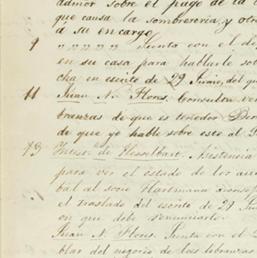 admor sobre el pago de la
que causa la sombrereria, y otro
á su encargo
9 " " " " " Junta con el de
en su casa para hablarle sob
cha en escrito de 29 Junio, del qu
11 Juan N. Flores. Consulta ver
branzas de que es tenedor
de que yo hable sobre esto al
13 de Hesselbart. Asistencia
para ver el estado de los au
bal al socio Hartmann
el traslado del escrito de 29
en que debe renunciarle.
Juan N. Flores. Junta con el
blar del negocio de las libranzas